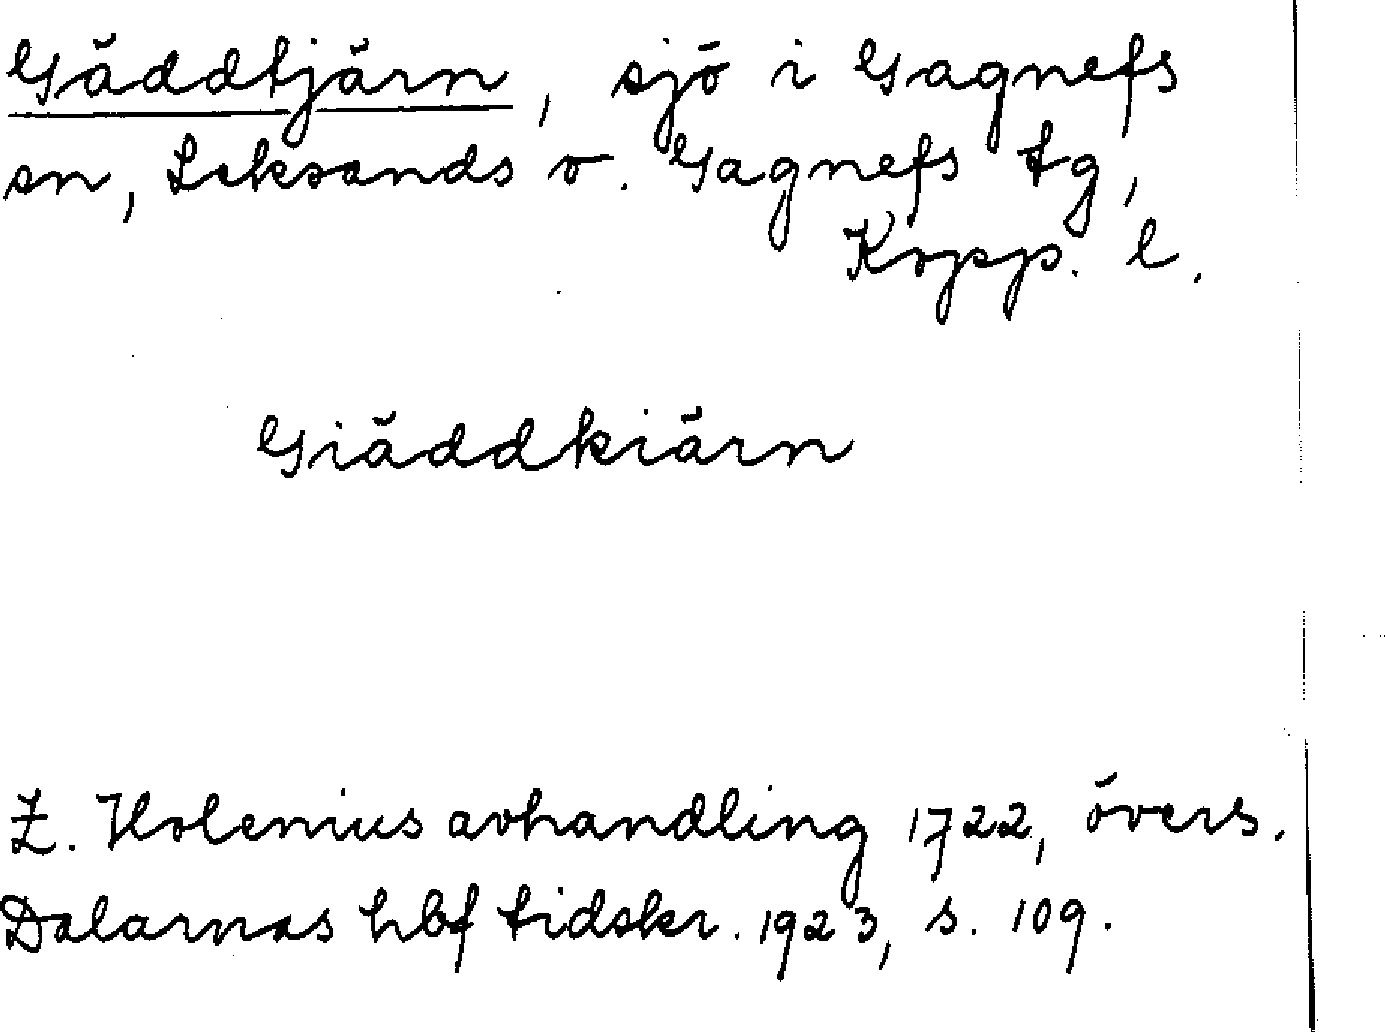 Gäddtjärn, sjö i Gagnefs
sn, Leksands o. Gagnefs tg,
Kopp. l.
Giäddkiärn
Z. Holenius avhandling 1722, övers.
Dalarnas hbf tidskr. 1923, s. 109.